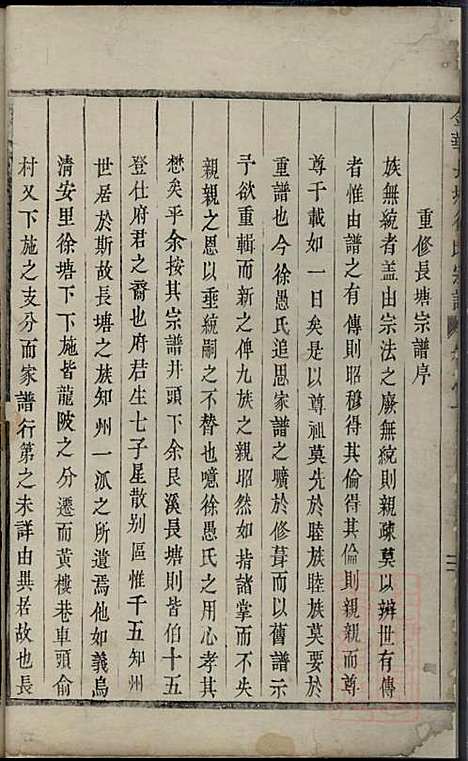 重修長塘宗譜序
族無統者盖由宗法之廢無統則親疎莫以辨世有傳
者惟由譜之有傳則昭穆得其倫得其倫則親親而尊
尊于載如一日矣是以尊祖莫先於睦族睦族莫要於
重譜也今徐愚氏追思家譜之曠於修葺而以舊譜示
予欲重輯而新之俾九族之親昭然如指諸掌而不失
親親之恩以垂統嗣之不替也噫徐愚氏之用心孝其
懋矣乎余按其宗譜井頭下余艮溪長塘則皆伯十五
登仕府君之裔也府君生七子星散别區惟千五知州
世居於斯故長塘之族知州一派之所遺焉他如義烏
清安里徐塘下下施皆龍陂之分遷而黄樓巷車頭俞
村又下施之支分而家譜行第之未詳由異居故也長
金華長塘徐氏宗譜